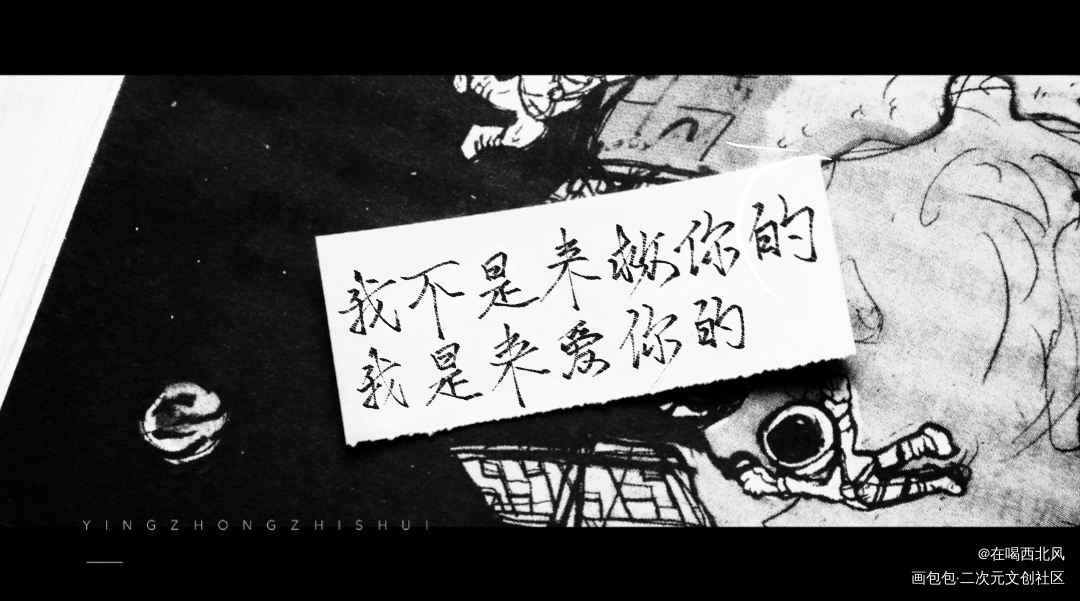 我不是来救你的
我是来爱你的
YINGZHONGZHISHUI
@在喝西北风
画包包·二次元文创社区